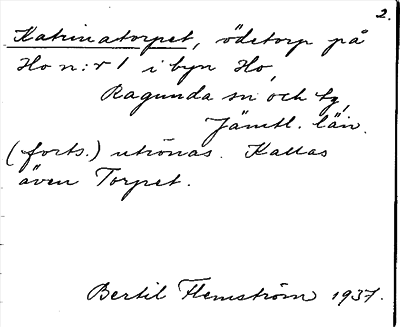 2.
Katrinatorpet, ödetorp på
Ho n:r 1 i byn Ho,
Ragunda sn och tg,
Jämtl. län.
(forts.) utrönas. Kallas
även Torpet.
Bertil Flemström 1937.